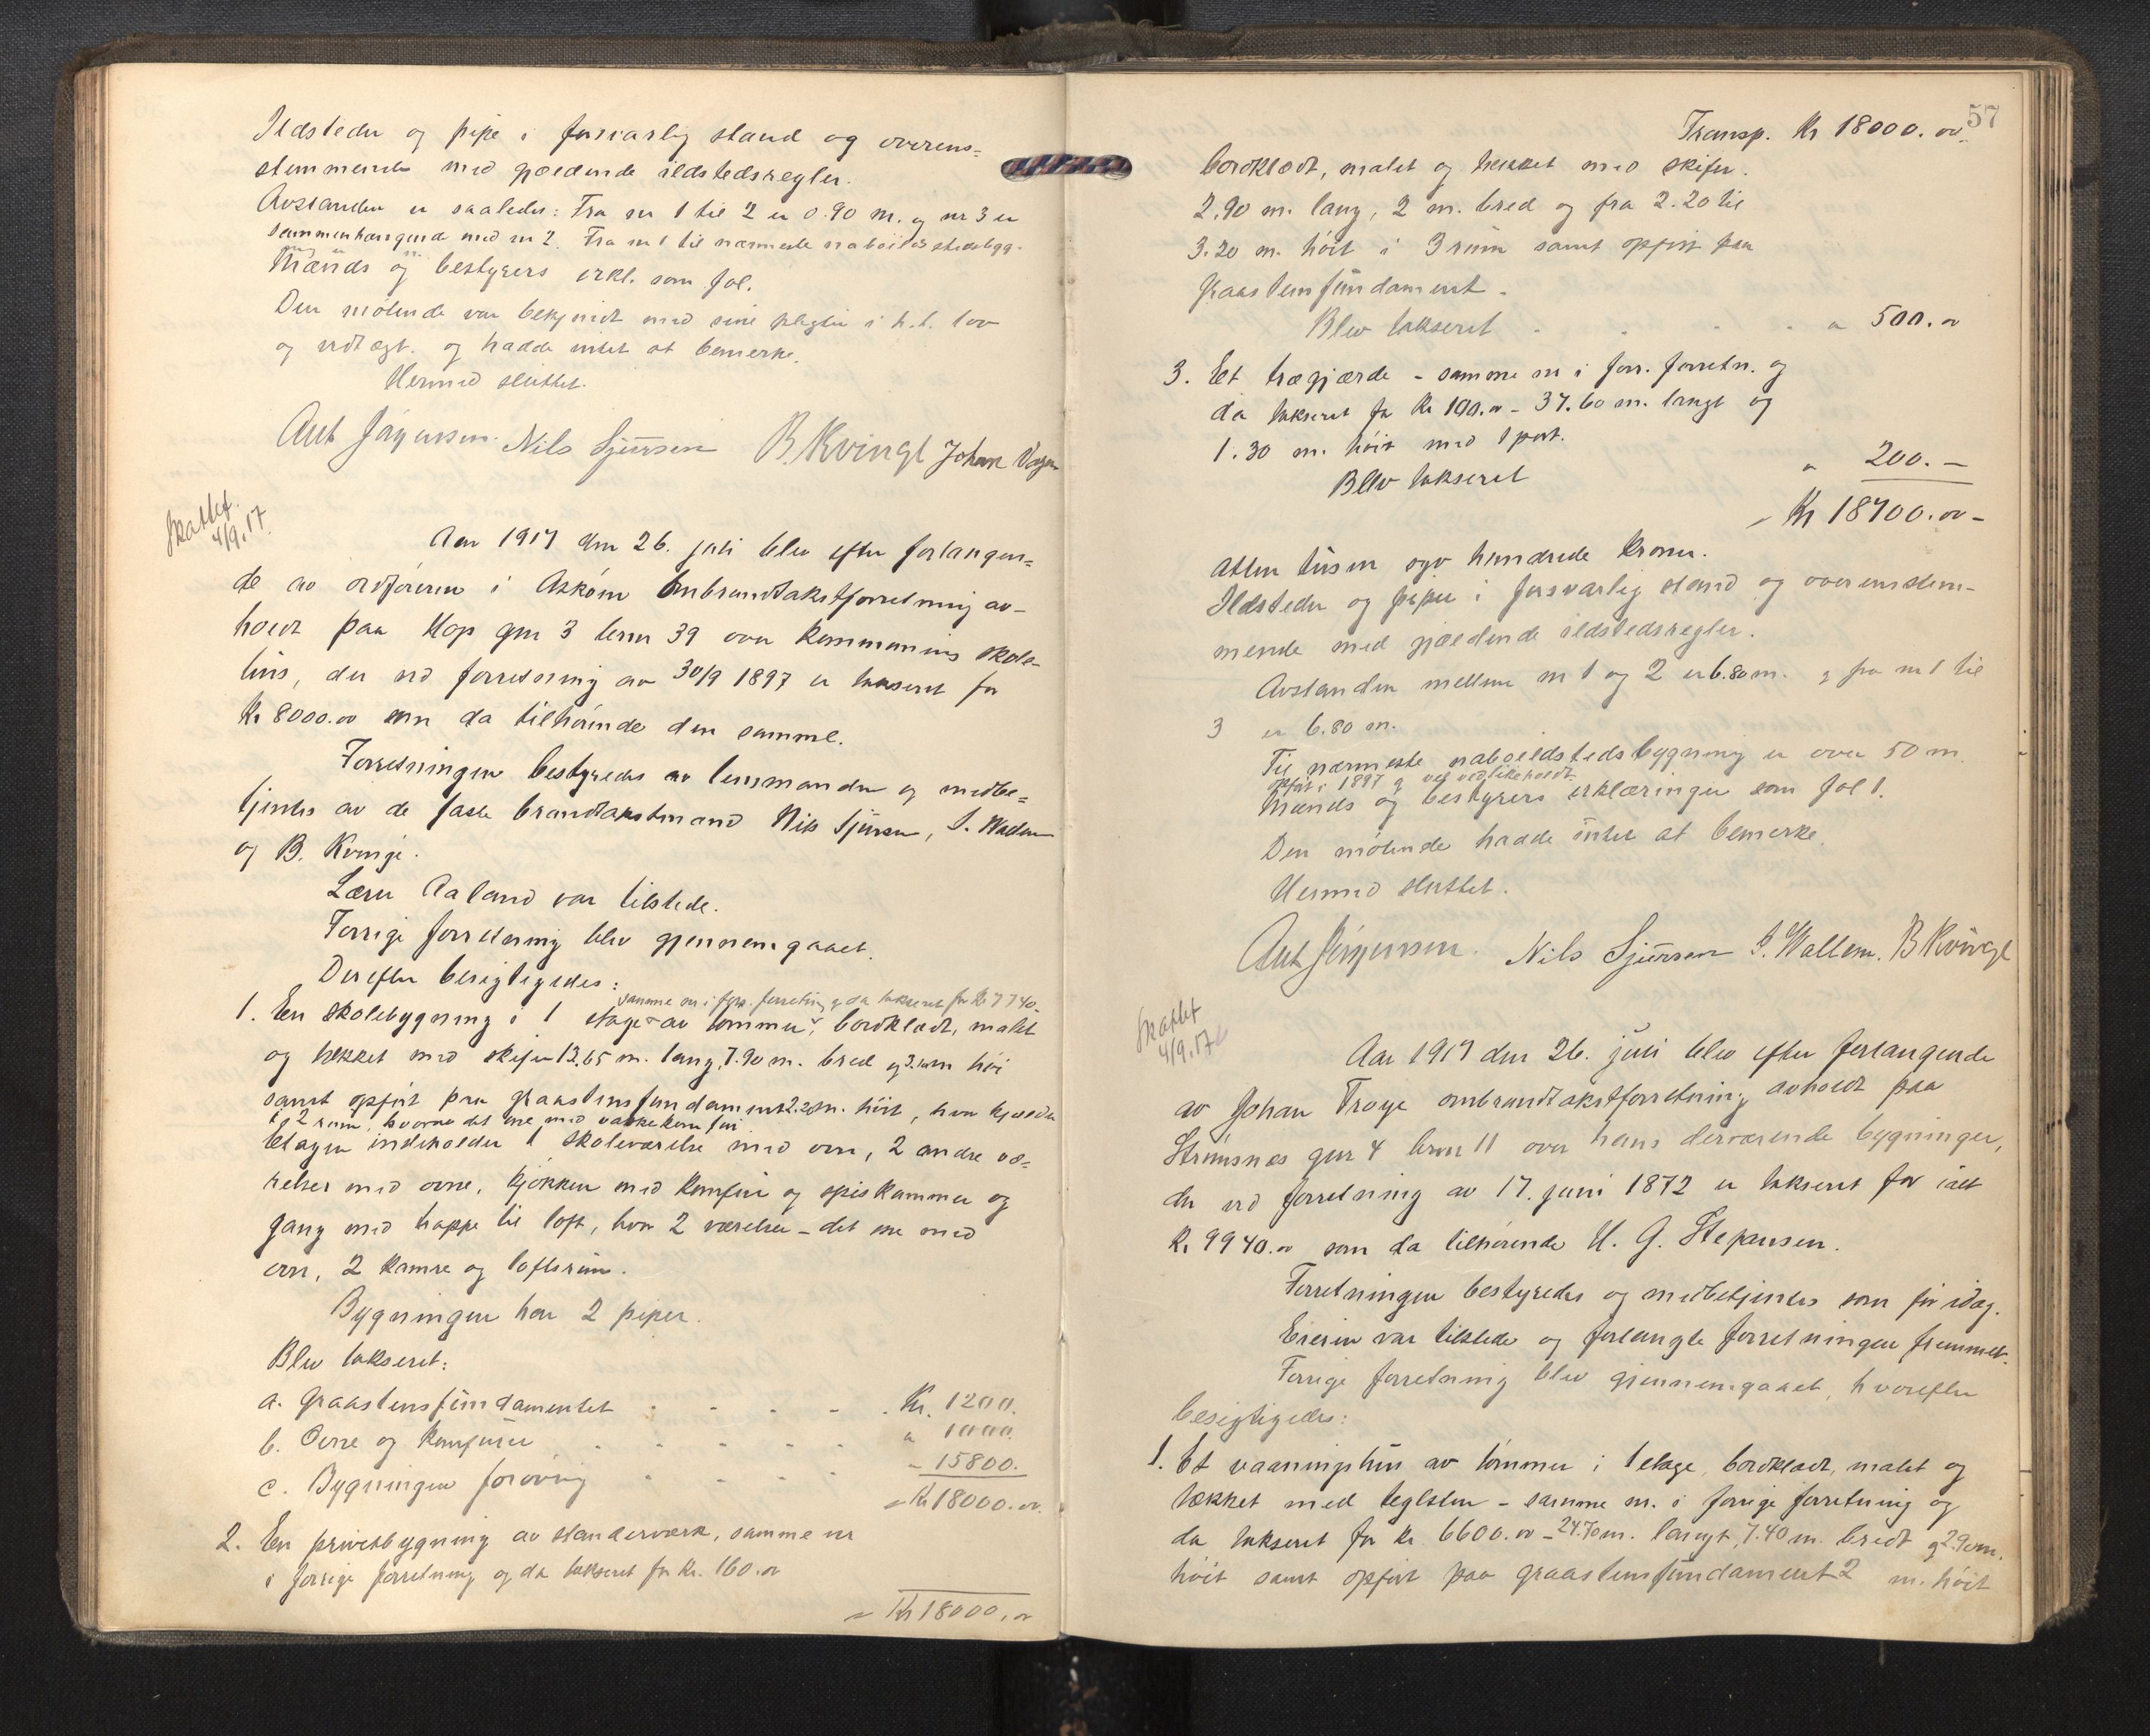 Ildsteder og pipe i forsvarlig stand og overens=
stemmende med gjældende ildstedsregler.
Avstanden er saaledes: Fra nr 1 til 2 er 0.90 m. og nr 3 er
sammenhængende med nr 2. Fra nr 1 til nærmeste naboildstedsbygg-
Mænds og bestyrers erkl. som fol.
Den møtende var bekjendt med sine pligter i h.t. lov
og vedtægt. og hadde intet at bemerke.
Hermed sluttet.
Ant Jørgensen. Nils Sjursen B. Kvinge Johan
Skattet
4/9.17.
Aar 1917 den 26. juli blev efter forlangen=
de av ordføreren i Askøen ombrandtakstforretning av-
holdt paa Hop gnr 3 brnr 39 over kommunens skole-
hus, der ved forretning av 30/9 1897 er takseret for
Kr 8000.00 som da tilhørende den samme.
Forretningen bestyredes av lensmanden og medbe=
tjentes av de faste brandtakstmænd Nils Sjursen, S. Wallem
og B. Kvinge.
Lærer Aaland var tilstede.
Forrige forretning blev gjennemgaaet.
Derefter besigtigedes:
samme nr i forr. forretning og da takseret for Kr 7740.
1. En skolebygning i 1 etage av tømmer, bordklædt, malet
og tækket med skifer 13.65 m. lang, 7.90 m. bred og m høi
samt opført paa graastensfundament 2.20 m. høit, hvor kjælder
i 2 rum, hvorav det ene med vaskekomfur
Etagen indeholder 1 skoleværelse med ovn, 2 andre væ=
relser med ovne, kjøkken med komfur og spiskammer og
gang med trappe til loft, hvor 2 værelser - det ene med
ovn, 2 kamre og loftsrum.
Bygningen har 2 piper.
Blev takseret:
a. Graastensfundamentet Kr. 1200.
b. Ovne og komfurer " 1000.
c. Bygningen forøvrig - 15800.
Kr 18000.00
2. En privetbygning av standerværk, samme nr
i forrige forretning og da takseret for Kr. 160.00
Kr 18000.00
57
Transp. Kr 18000.00
bordklædt, malet og tækket med skifer.
2.90 m. lang, 2 m. bred og fra 2.20 til
3.20 m. høit i 3 rum samt opført paa
graastensfundament.
Blev takseret " 500.00
3. Et trægjærde - samme nr i forr. forretn. og
da takseret for Kr 100.00 - 37.60 m. langt og
1.30 m. høit med 1 port.
Blev takseret " 200.-
Kr 18700.00
Atten tusen syv hundrede kroner.
Ildsteder og piper i forsvarlig stand og overenstem-
mende med gjældende ildstedsregler.
Avstanden mellem nr 1 og 2 er 6.80 m. og fra nr 1 til
3 er 6.80 m.
Til nærmeste naboildstedsbygning er over 50 m.
opført i 1897 og vel vedlikeholdt.
Mænds og bestyrers erklæringer som fol 1.
Den møtende hadde intet at bemerke.
Hermed sluttet.
Ant Jørgensen. Nils Sjursen S. Wallem. B Kvinge
Skattet
4/9.17
Aar 1917 den 26. juli blev efter forlangende
av Johan Troye ombrandtakstforretning avholdt paa
Strømsnes gnr 4 brnr 11 over hans derværende bygninger,
der ved forretning av 17. juni 1872 er takseret for ialt
Kr 9940.00 som da tilhørende H. G. Stephansen.
Forretningen bestyredes og medbetjentes som før idag.
Eieren var tilstede og forlangte forretningen fremmet.
Forrige forretning blev gjennemgaaet, hvorefter
besigtigedes:
1. Et vaaningshus av tømmer i 1 etage, bordklædt, malet og
tækket med teglsten - samme nr. i forrige forretning og
da takseret for kr 6600.00 - 24.70 m. langt, 7.40 m. bredt og 2.90 m.
høit samt opført paa graastensfundament 2 m. høit